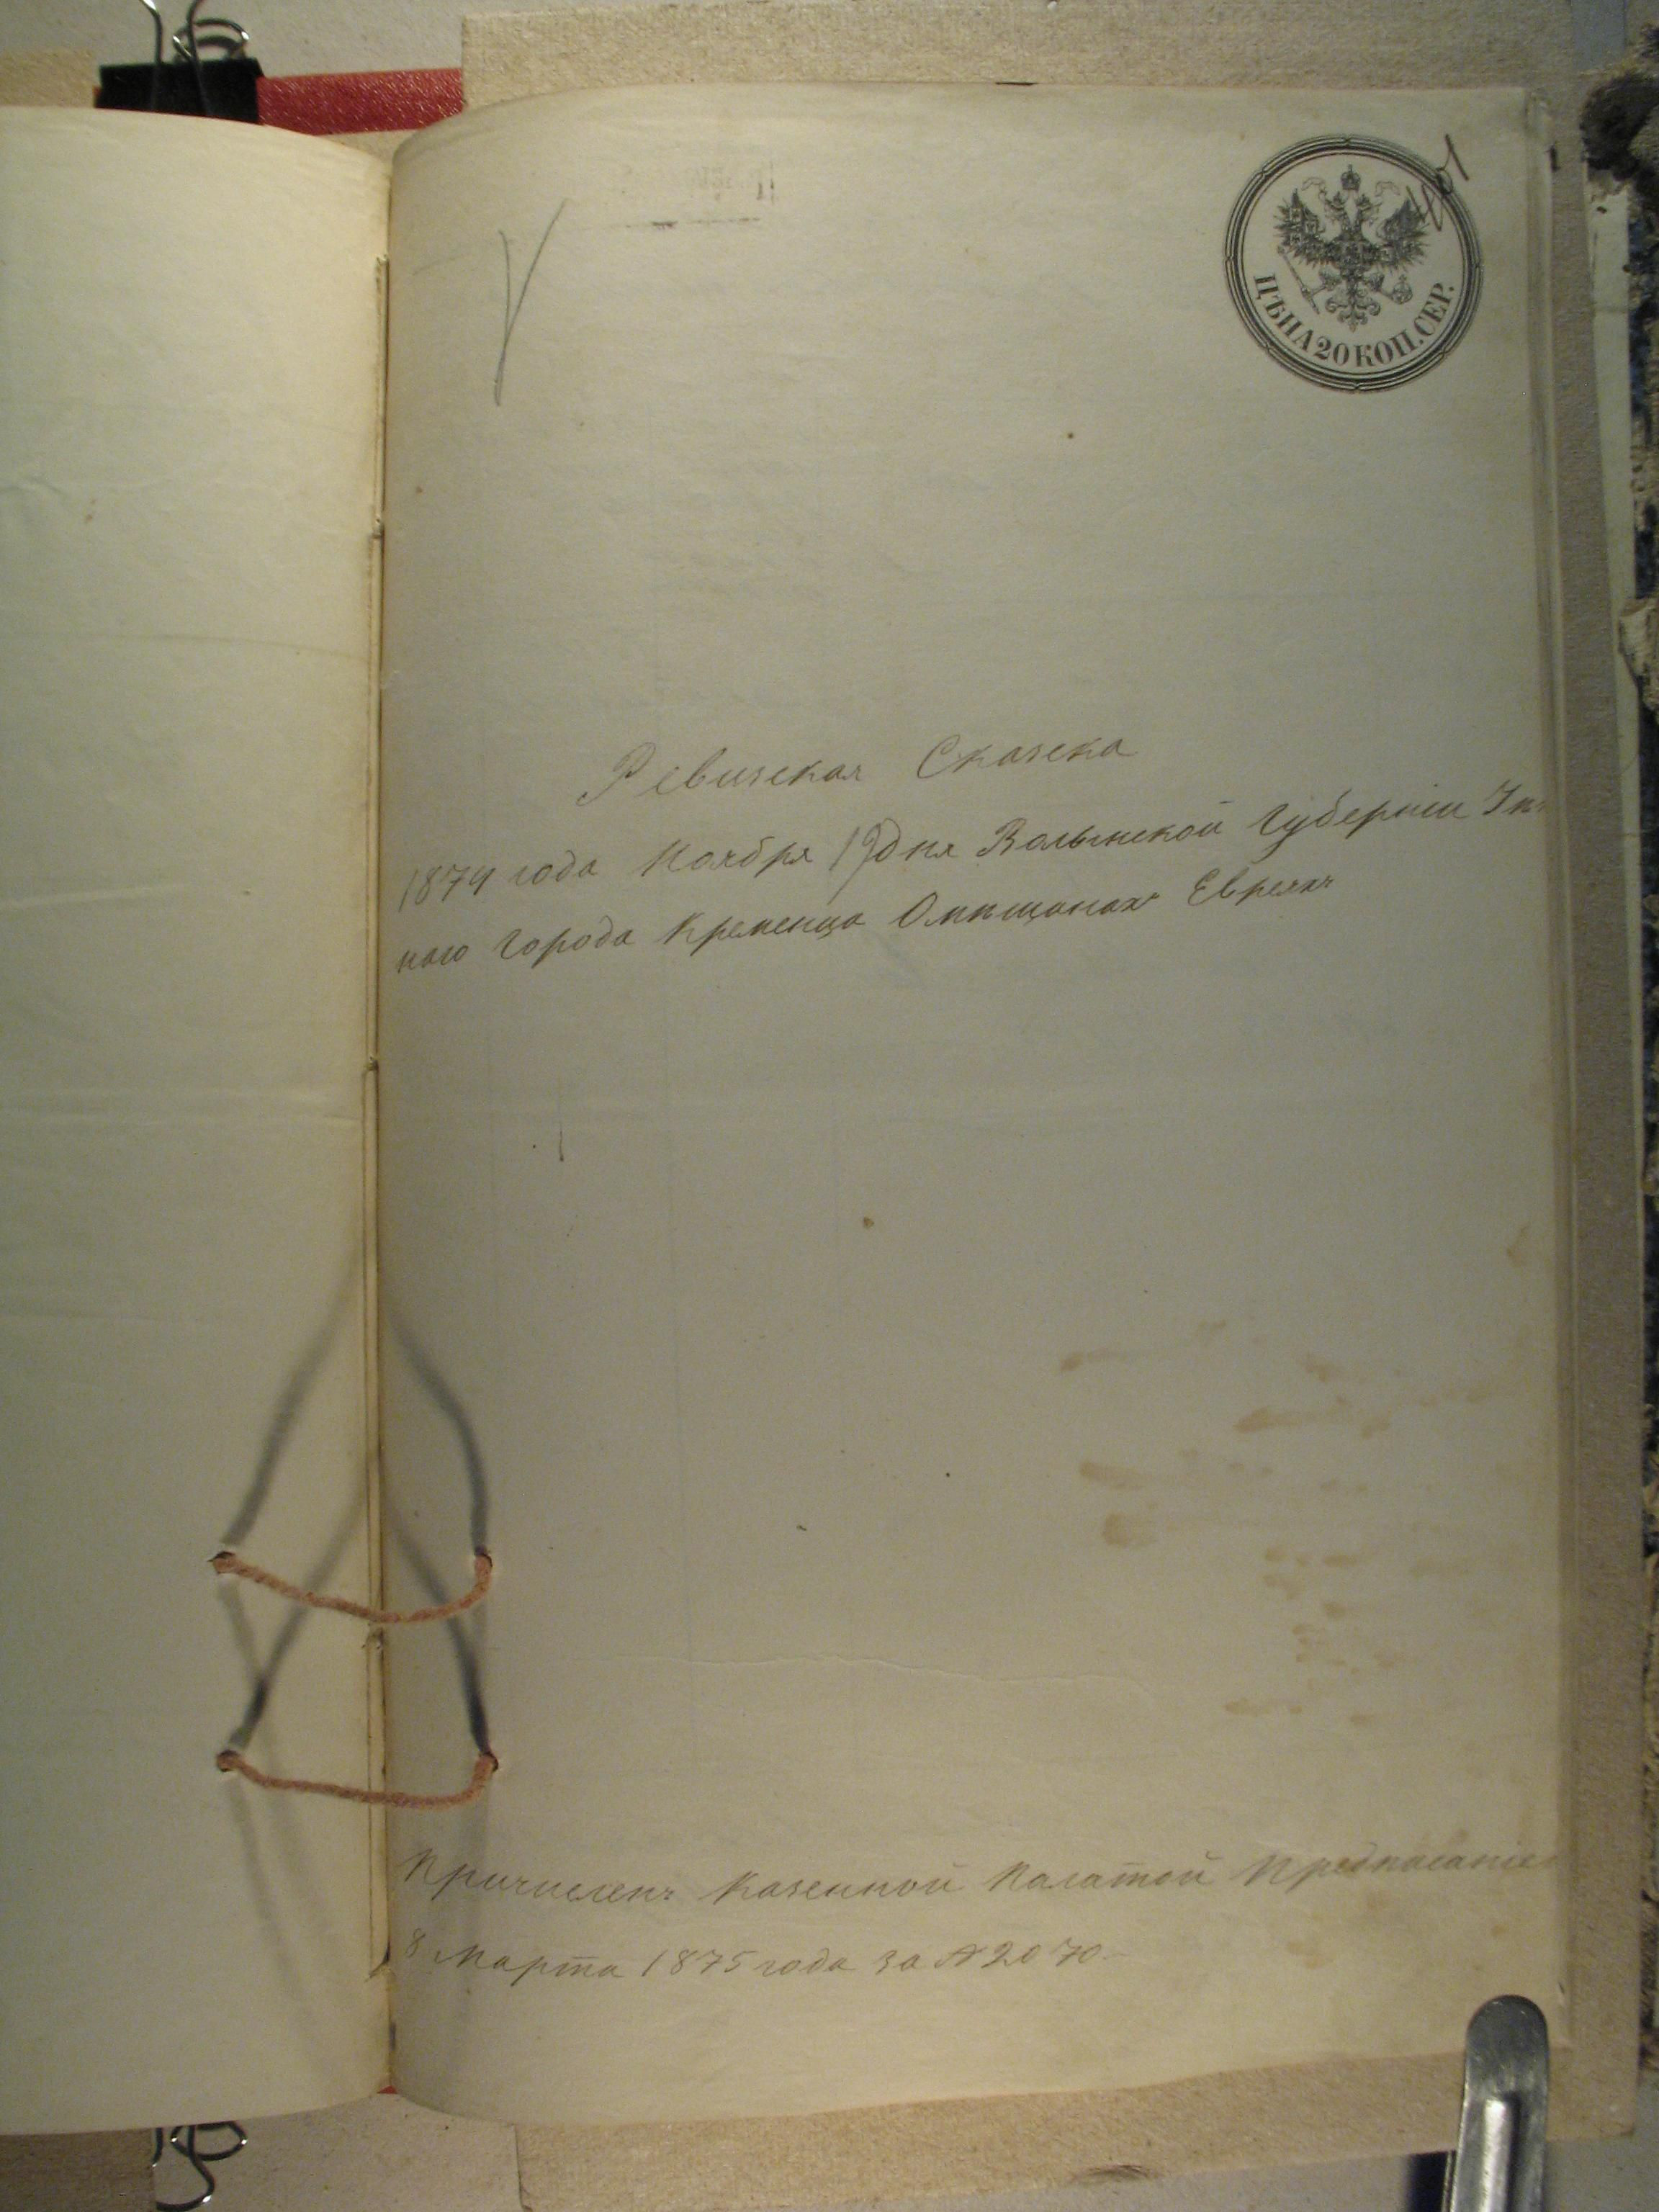 ЦѢНА 20 КОП. СЕР.
Ревизская Сказка
1874 года Ноября 19 дня Волынской Губернiи
наго Города Кременца О мѣщанахъ Евреяхъ
Причисленъ Казенной Палатой Предписанiе
8 Марта 1875 года за № 2070